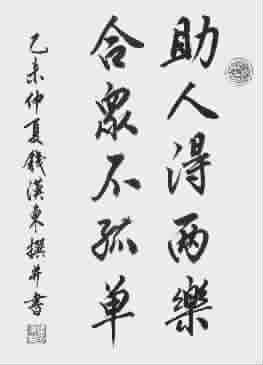 助人得两樂
合眾不孤单
乙未仲夏錢漢東撰并書